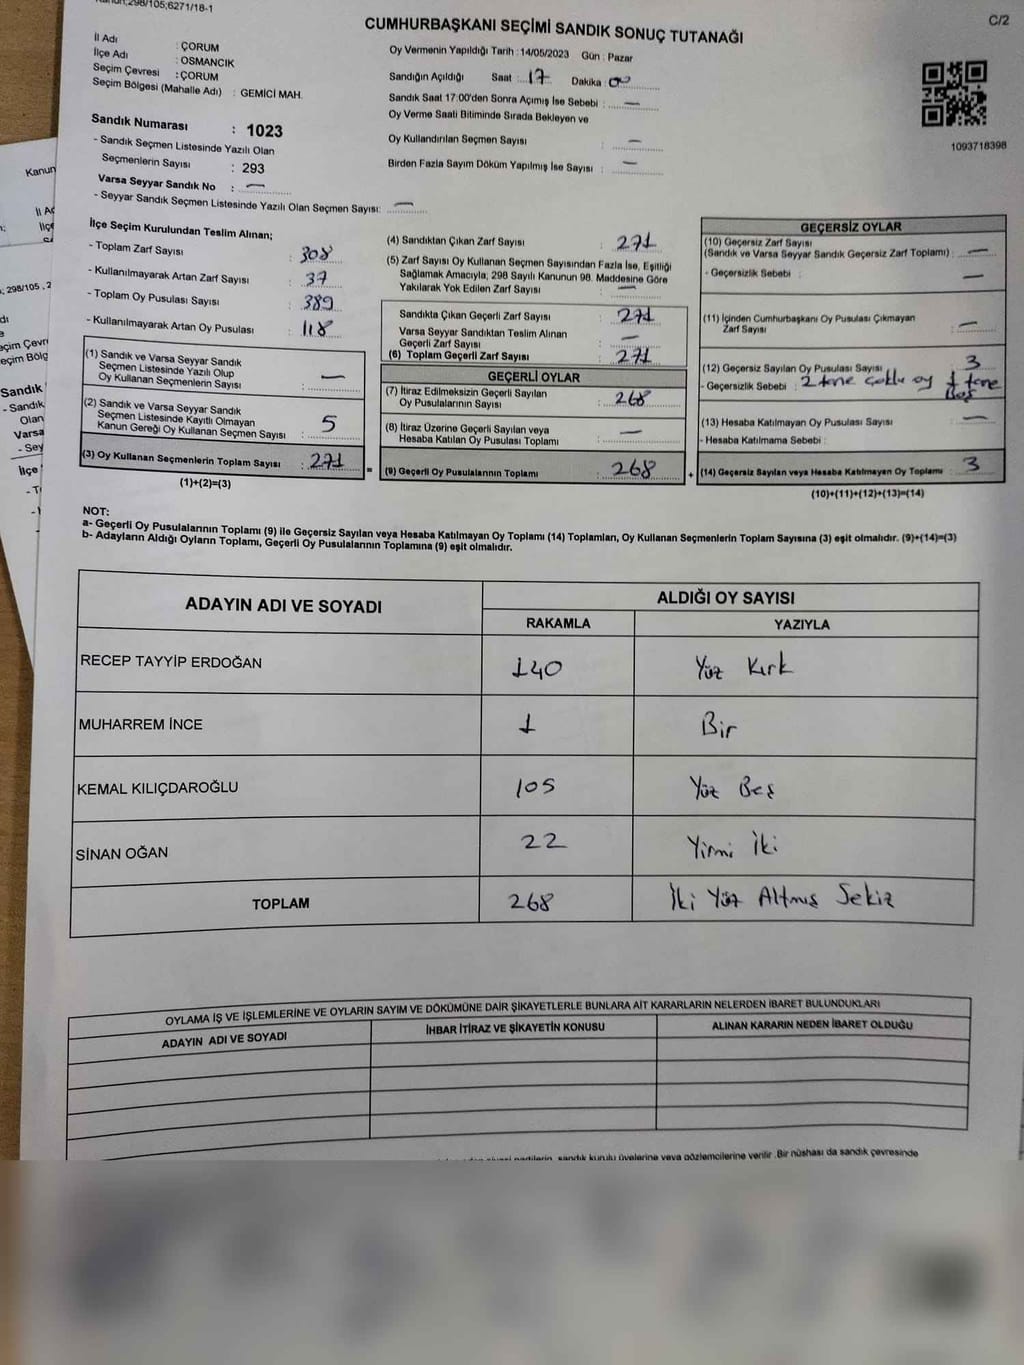 298/105;6271/18-1
C/2
CUMHURBAŞKANI SEÇİMİ SANDIK SONUÇ TUTANAĞI
İl Adı : ÇORUM
İlçe Adı : OSMANCIK
Seçim Çevresi : ÇORUM
Seçim Bölgesi (Mahalle Adı) : GEMİCİ MAH.
Sandık Numarası : 1023
- Sandık Seçmen Listesinde Yazılı Olan
Seçmenlerin Sayısı : 293
Varsa Seyyar Sandık No : —
- Seyyar Sandık Seçmen Listesinde Yazılı Olan Seçmen Sayısı: —
Oy Vermenin Yapıldığı Tarih : 14/05/2023 Gün : Pazar
Sandığın Açıldığı Saat : 17 Dakika : 00
Sandık Saat 17:00'den Sonra Açımış İse Sebebi : —
Oy Verme Saati Bitiminde Sırada Bekleyen ve
Oy Kullandırılan Seçmen Sayısı : —
Birden Fazla Sayım Döküm Yapılmış İse Sayısı : —
1093718398
İlçe Seçim Kurulundan Teslim Alınan;
- Toplam Zarf Sayısı : 308
- Kullanılmayarak Artan Zarf Sayısı : 37
- Toplam Oy Pusulası Sayısı : 389
- Kullanılmayarak Artan Oy Pusulası : 118
(1) Sandık ve Varsa Seyyar Sandık
Seçmen Listesinde Yazılı Olup
Oy Kullanan Seçmenlerin Sayısı : —
(2) Sandık ve Varsa Seyyar Sandık
Seçmen Listesinde Kayıtlı Olmayan
Kanun Gereği Oy Kullanan Seçmen Sayısı : 5
(3) Oy Kullanan Seçmenlerin Toplam Sayısı : 271
(1)+(2)=(3)
(4) Sandıktan Çıkan Zarf Sayısı : 271
(5) Zarf Sayısı Oy Kullanan Seçmen Sayısından Fazla İse, Eşitliği
Sağlamak Amacıyla; 298 Sayılı Kanunun 98. Maddesine Göre
Yakılarak Yok Edilen Zarf Sayısı : —
Sandıkta Çıkan Geçerli Zarf Sayısı : 271
Varsa Seyyar Sandıktan Teslim Alınan
Geçerli Zarf Sayısı : —
(6) Toplam Geçerli Zarf Sayısı : 271
GEÇERLİ OYLAR
(7) İtiraz Edilmeksizin Geçerli Sayılan
Oy Pusulalarının Sayısı : 268
(8) İtiraz Üzerine Geçerli Sayılan veya
Hesaba Katılan Oy Pusulası Toplamı : —
= (9) Geçerli Oy Pusulalarının Toplamı : 268 +
GEÇERSİZ OYLAR
(10) Geçersiz Zarf Sayısı
(Sandık ve Varsa Seyyar Sandık Geçersiz Zarf Toplamı) : —
- Geçersizlik Sebebi : —
(11) İçinden Cumhurbaşkanı Oy Pusulası Çıkmayan
Zarf Sayısı : —
(12) Geçersiz Sayılan Oy Pusulası Sayısı : 3
- Geçersizlik Sebebi : 2 tane çoklu oy 1 tane
Boş
(13) Hesaba Katılmayan Oy Pusulası Sayısı : —
- Hesaba Katılmama Sebebi :
(14) Geçersiz Sayılan veya Hesaba Katılmayan Oy Toplamı : 3
(10)+(11)+(12)+(13)=(14)
NOT:
a- Geçerli Oy Pusulalarının Toplamı (9) ile Geçersiz Sayılan veya Hesaba Katılmayan Oy Toplamı (14) Toplamları, Oy Kullanan Seçmenlerin Toplam Sayısına (3) eşit olmalıdır. (9)+(14)=(3)
b- Adayların Aldığı Oyların Toplamı, Geçerli Oy Pusulalarının Toplamına (9) eşit olmalıdır.
ADAYIN ADI VE SOYADI ALDIĞI OY SAYISI
RAKAMLA YAZIYLA
RECEP TAYYİP ERDOĞAN 140 Yüz Kırk
MUHARREM İNCE 1 Bir
KEMAL KILIÇDAROĞLU 105 Yüz Beş
SİNAN OĞAN 22 Yirmi İki
TOPLAM 268 İki Yüz Altmış Sekiz
OYLAMA İŞ VE İŞLEMLERİNE VE OYLARIN SAYIM VE DÖKÜMÜNE DAİR ŞİKAYETLERLE BUNLARA AİT KARARLARIN NELERDEN İBARET BULUNDUKLARI
ADAYIN ADI VE SOYADI İHBAR İTİRAZ VE ŞİKAYETİN KONUSU ALINAN KARARIN NEDEN İBARET OLDUĞU
sandık kurulu üyelerine veya gözlemcilerine verilir .Bir nüshası da sandık çevresinde